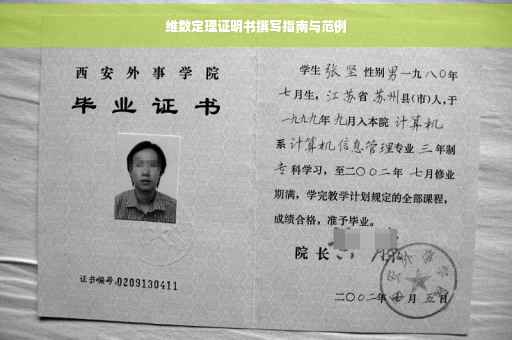 维数定理证明书撰写指南与范例
西安外事学院
毕业证书
证书编号:0209130411
学生张坚性别男一九八〇年
七月生,江苏省苏州县(市)人,于
一九九九年九月入本院计算机
系计算机信息管理专业三年制
专科学习,至二〇〇二年七月修业
期满,学完教学计划规定的全部课程,
成绩合格,准予毕业。
院长
二〇〇二年 月五日